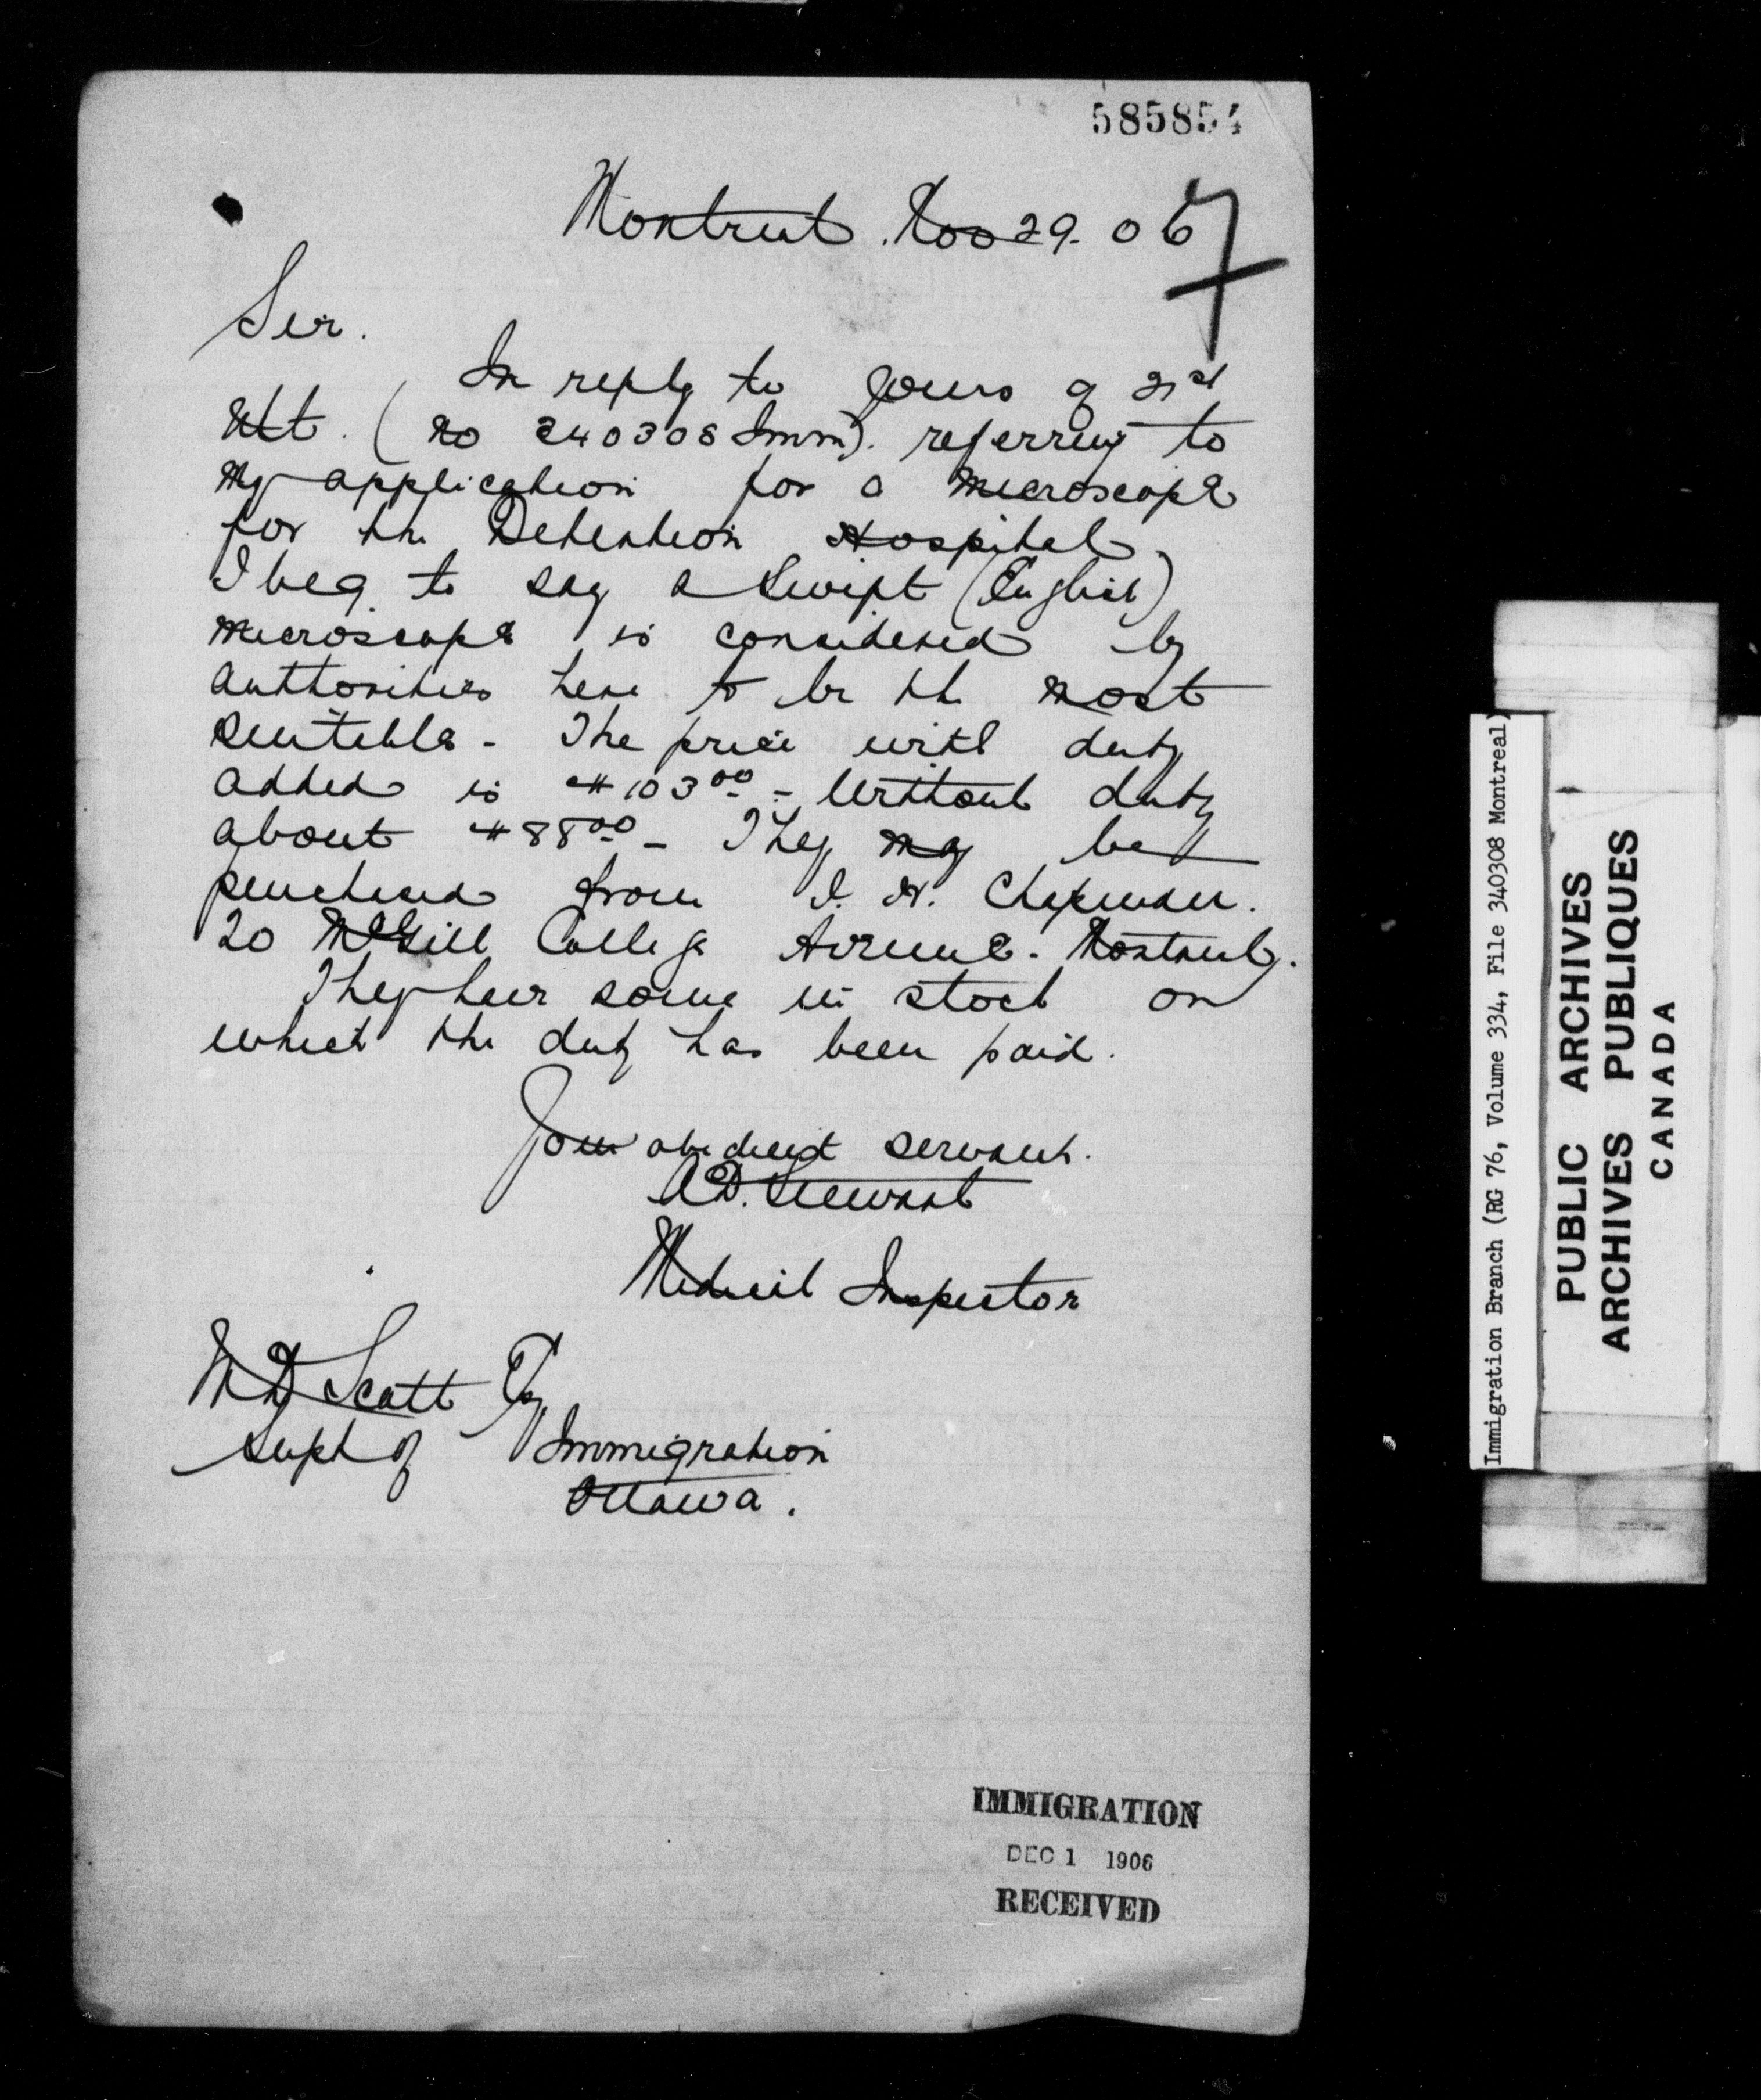 585854
Montreal. Nov 29. 06
7
Sir.
In reply to yours of 21st
Ult. (No 340308 Imm). referring to
My application for a Microscope
for the Detention Hospital,
I beg to say a Swift (English)
Microscope is considered by
authorities here to be the most
suitable - The price with duty
added is $103.00 - Without duty
about $88.00 - They may be
purchased from I. H. Chapman.
20 McGill College Avenue. Montreal.
They have some in stock on
which the duty has been paid.
Your obedient servant.
A.D. Stewart
Medical Inspector
W D Scott Esq
Supt of Immigration
Ottawa.
IMMIGRATION
DEC 1 1906
RECEIVED
Immigration Branch (RG 76, Volume 334, File 340308 Montreal)
PUBLIC ARCHIVES
ARCHIVES PUBLIQUES
CANADA